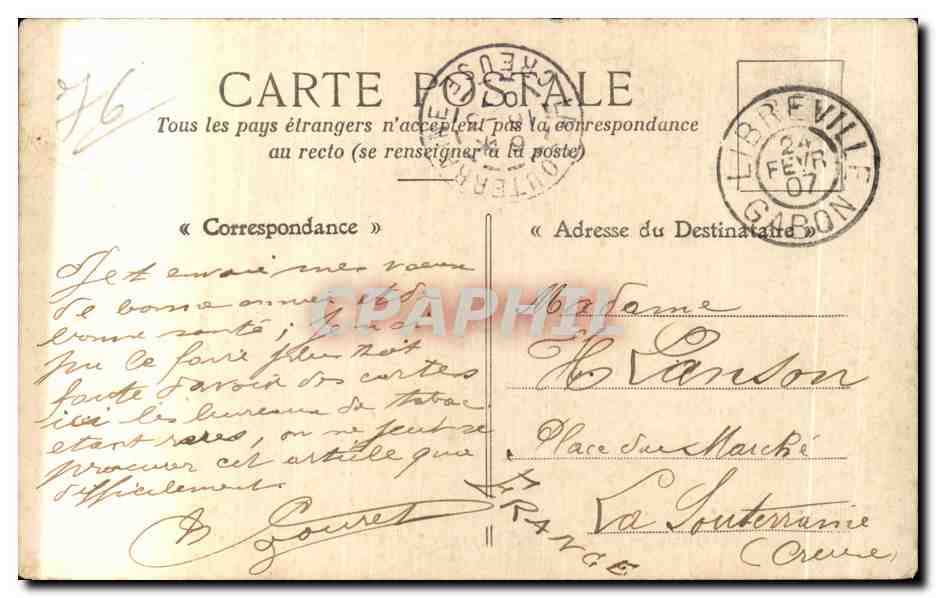 76
CARTE POSTALE
Tous les pays étrangers n'acceptent pas la correspondance
au recto (se renseigner à la poste)
LA SOUTERRAINE CREUSE
LIBREVILLE
24
FEVR
07
GABON
« Correspondance »
« Adresse du Destinataire »
Je t envoie mes voeux
de bonne année et de
bonne santé ; je n ai
pu le faire plus tôt
faute d'avoir des cartes
ici les bureaux de tabac
etant rares, on ne peut se
procurer cet article que
difficilement
Gouret
Madame
H Lanson
Place du Marché
La Souterraine
(Creuse)
FRANCE
CPAPHIL